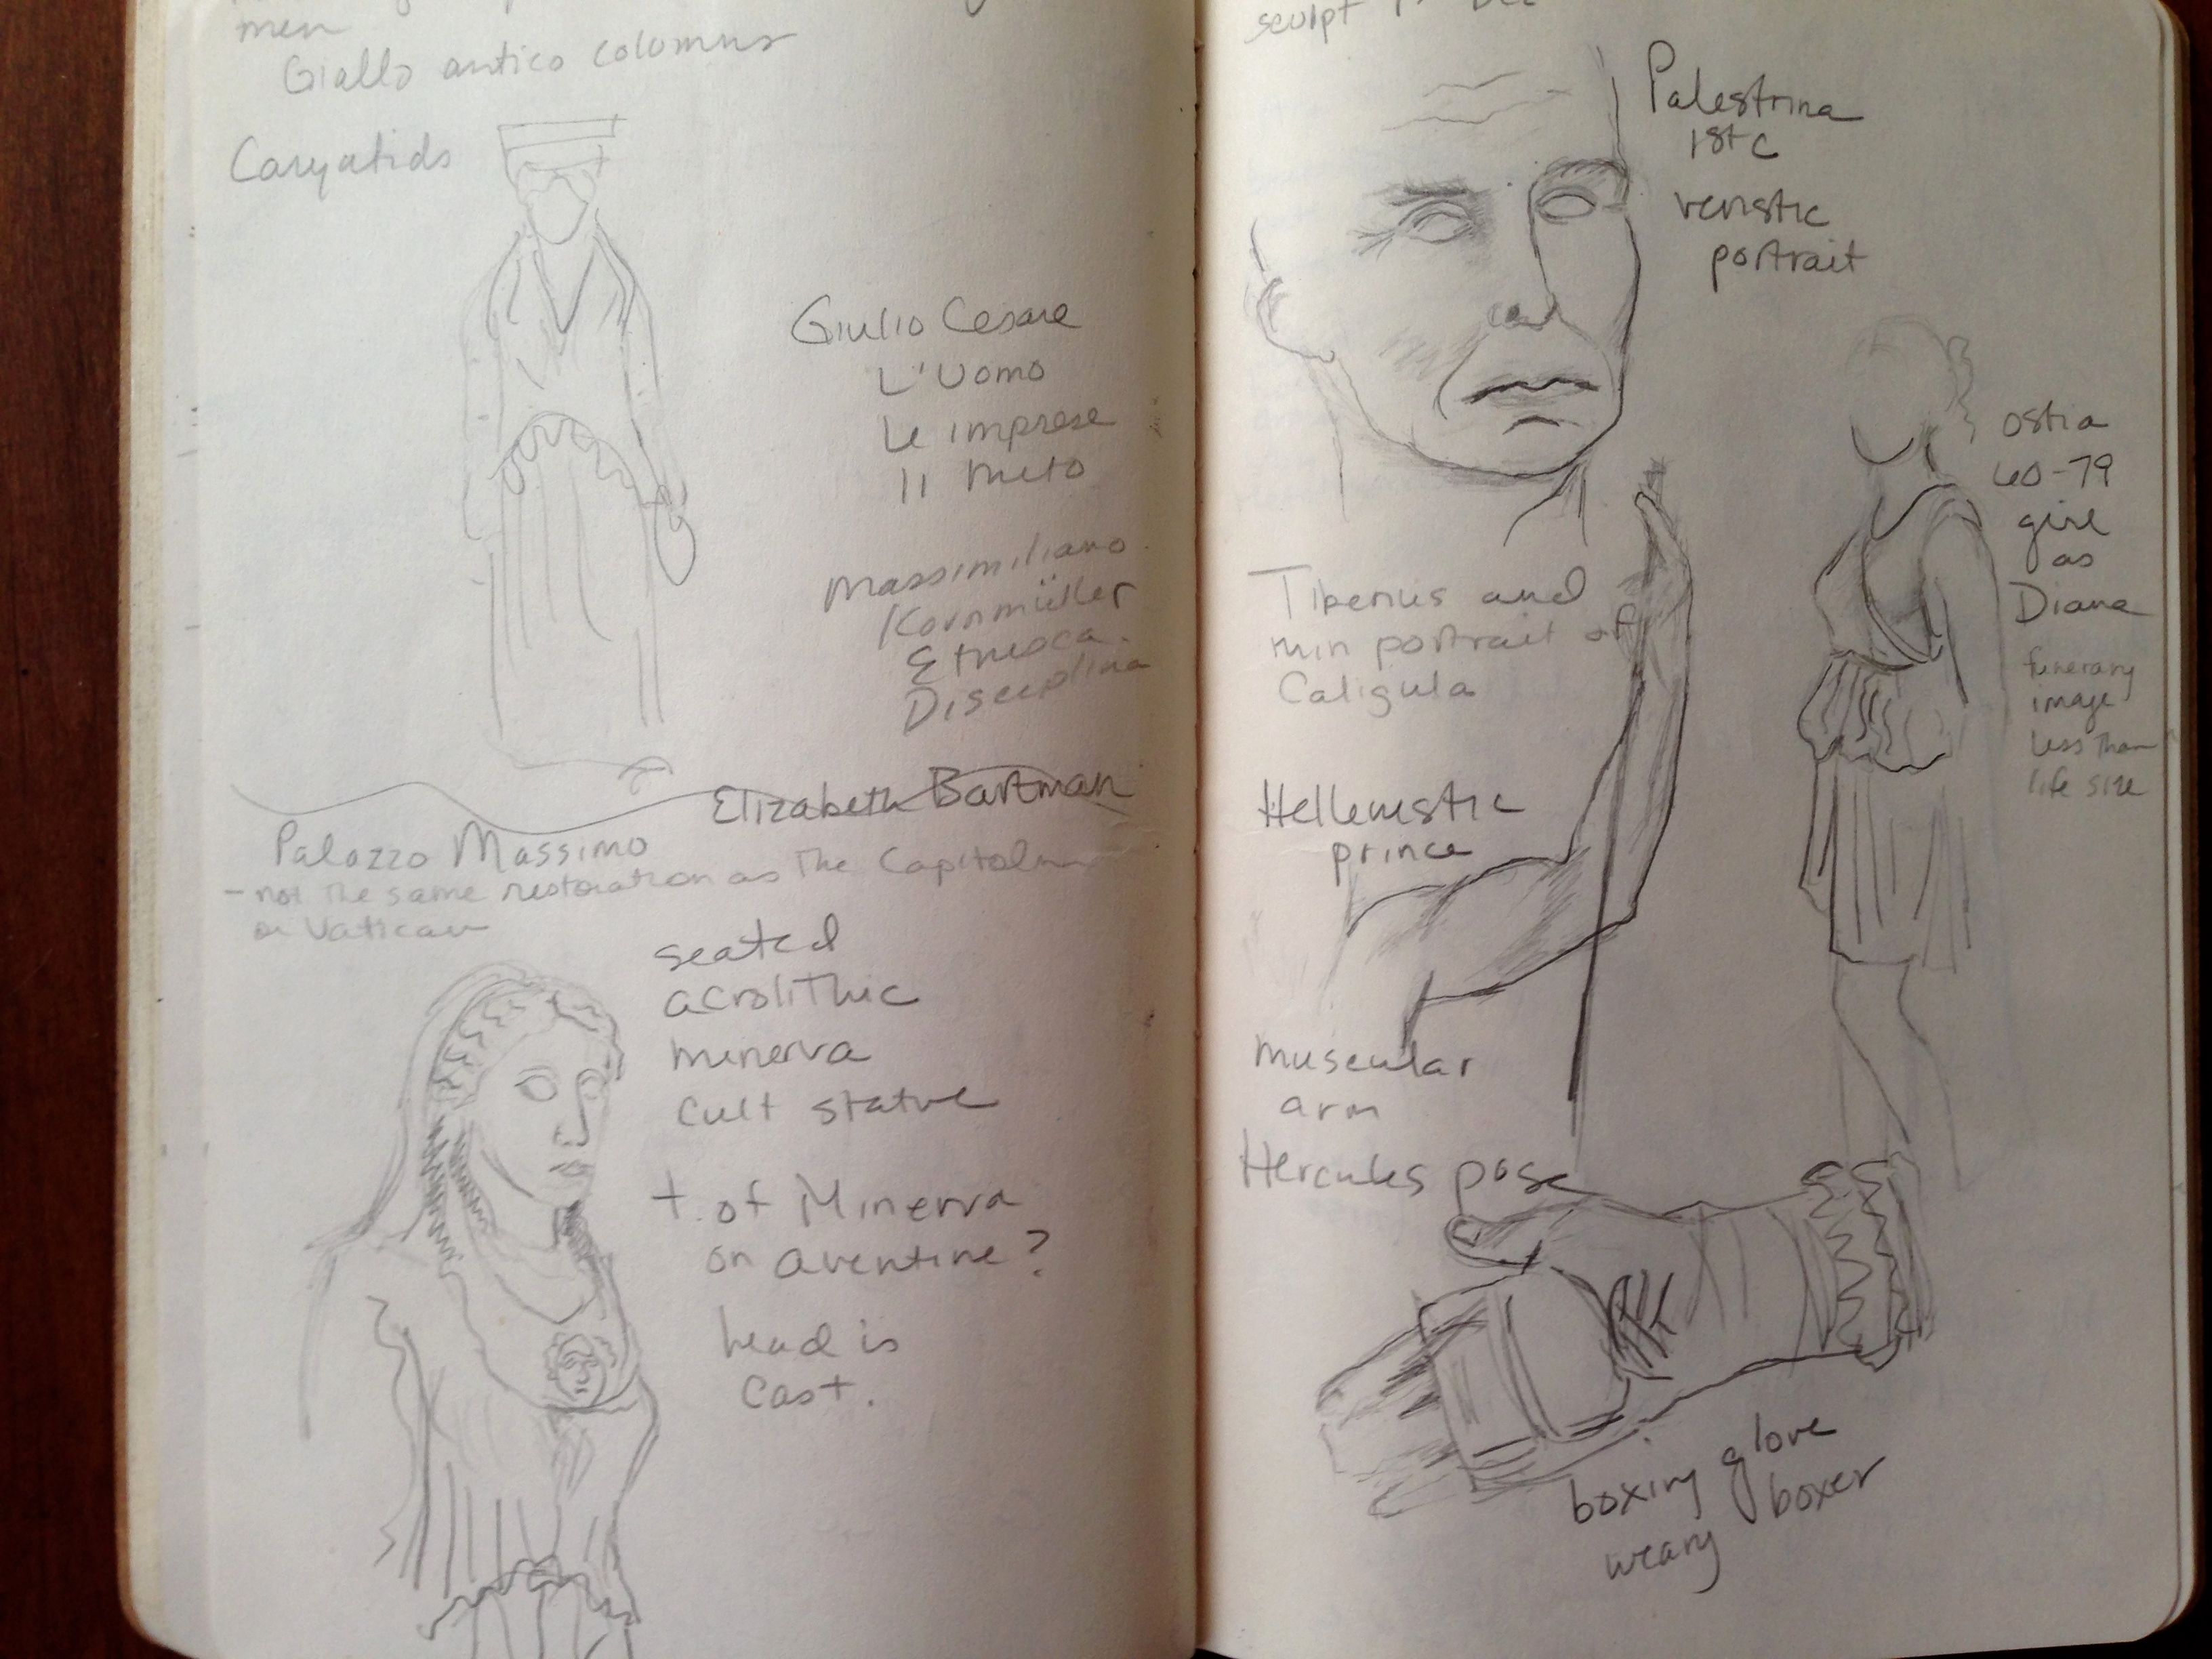 men
Giallo antico columns
Caryatids
Giulio Cesare
L'Uomo
Le imprese
Il mito
Massimiliano
Kornmüller
Etrusca
Disciplina
Elizabeth Bartman
Palazzo Massimo
- not the same restoration as the Capitoline
or Vatican
seated
acrolithic
minerva
cult statue
t. of Minerva
on aventine?
head is
cast.
sculpt
Palestrina
1st c
veristic
portrait
ostia
60-79
girl
as
Diana
funerary
image
less than
life size
Tiberius and
min portrait of
Caligula
Hellenistic
prince
muscular
arm
Hercules pose
boxing glove
weary boxer